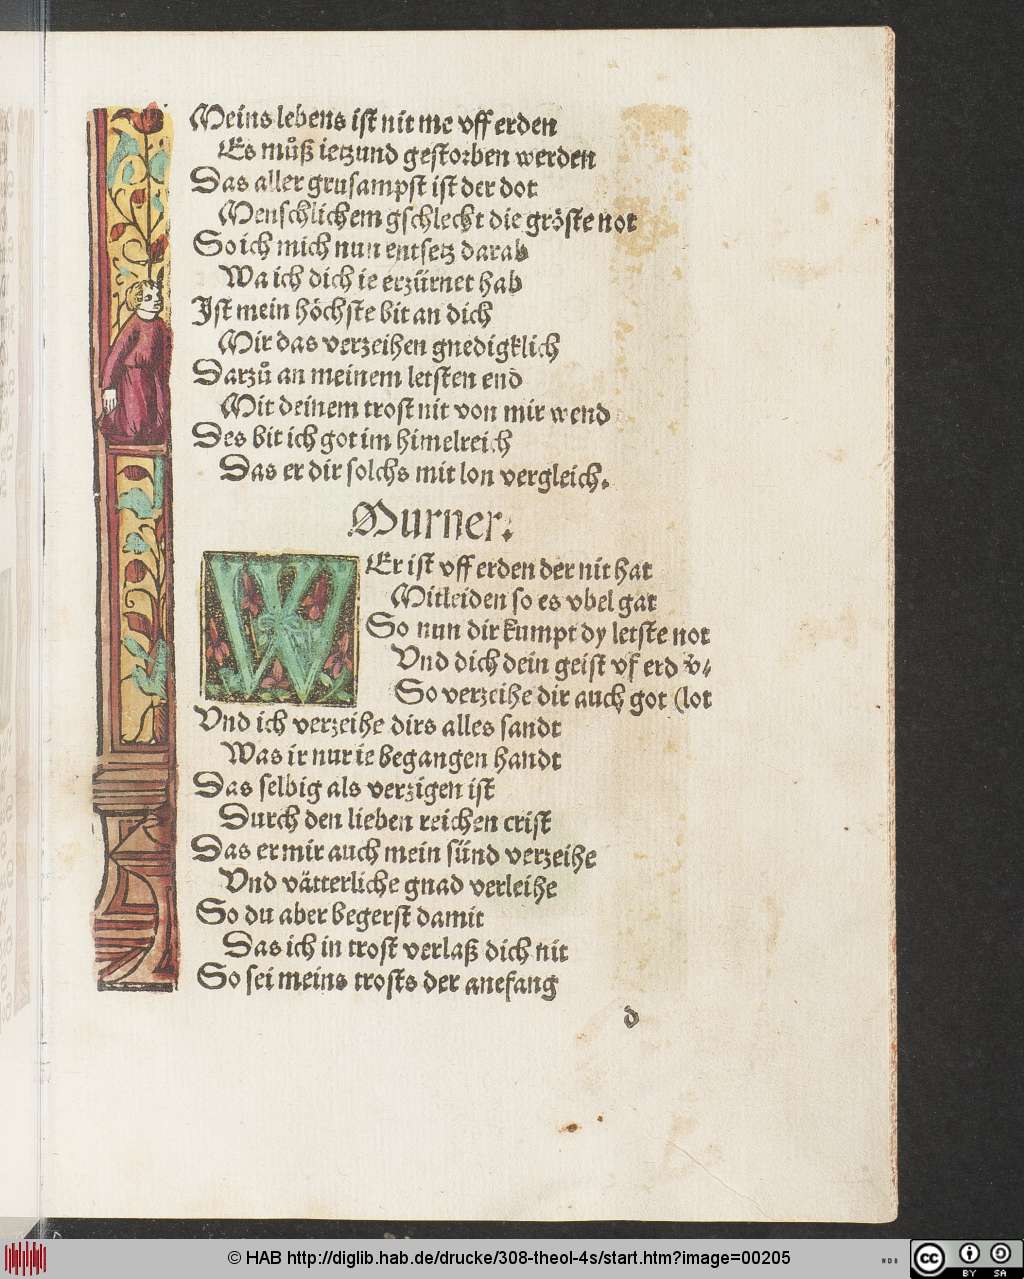 Meins lebens ist nit me vff erden
Es můß ietzund gestorben werden
Das aller grusampst ist der dot
Menschlichem gschlecht die gröste not
So ich mich nun entsetz darab
Wa ich dich ie erzürnet hab
Ist mein höchste bit an dich
Mir das verzeihen gnedigklich
Darzů an meinem letsten end
Mit deinem trost nit von mir wend
Des bit ich got im himelreich
Das er dir solchs mit lon vergleich.
Murner.
WEr ist vff erden der nit hat
Mitleiden so es vbel gat
So nun dir kumpt dy letste not
Vnd dich dein geist vf erd v̈⸗
So verzeihe dir auch got (lot
Vnd ich verzeihe dirs alles sandt
Was ir nur ie begangen handt
Das selbig als verzigen ist
Durch den lieben reichen crist
Das er mir auch mein sünd verzeihe
Vnd vätterliche gnad verleihe
So du aber begerst damit
Das ich in trost verlaß dich nit
So sei meins trosts der anefang
d
© HAB http://diglib.hab.de/drucke/308-theol-4s/start.htm?image=00205
WDB
cc BY SA